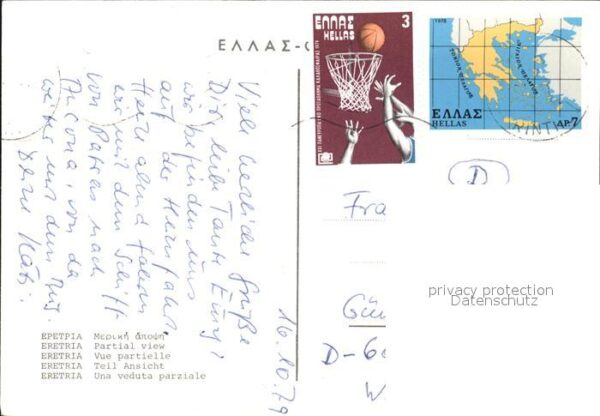 ΕΛΛΑΣ
HELLAS
3
1978
ΙΟΝΙΟΝ ΠΕΛΑΓΟΣ
ΑΙΓΑΙΟΝ ΠΕΛΑΓΟΣ
ΕΛΛΑΣ
HELLAS
ΔΡ.7
ΕΛΛΑΣ-
16.10.79
Viele herzliche Grüße
Dir, liebe Tante Emmy!
wir befinden uns
auf der Heimfahrt.
Heute abend fahren
wir mit dem Schiff
von Patras nach
Ancona, von da
weiter mit dem Zug.
Deine Käthi.
D
Fra
Gün
D-6
W
privacy protection
Datenschutz
ΕΡΕΤΡΙΑ Μερική άποψη
ERETRIA Partial view
ERETRIA Vue partielle
ERETRIA Teil Ansicht
ERETRIA Una veduta parziale